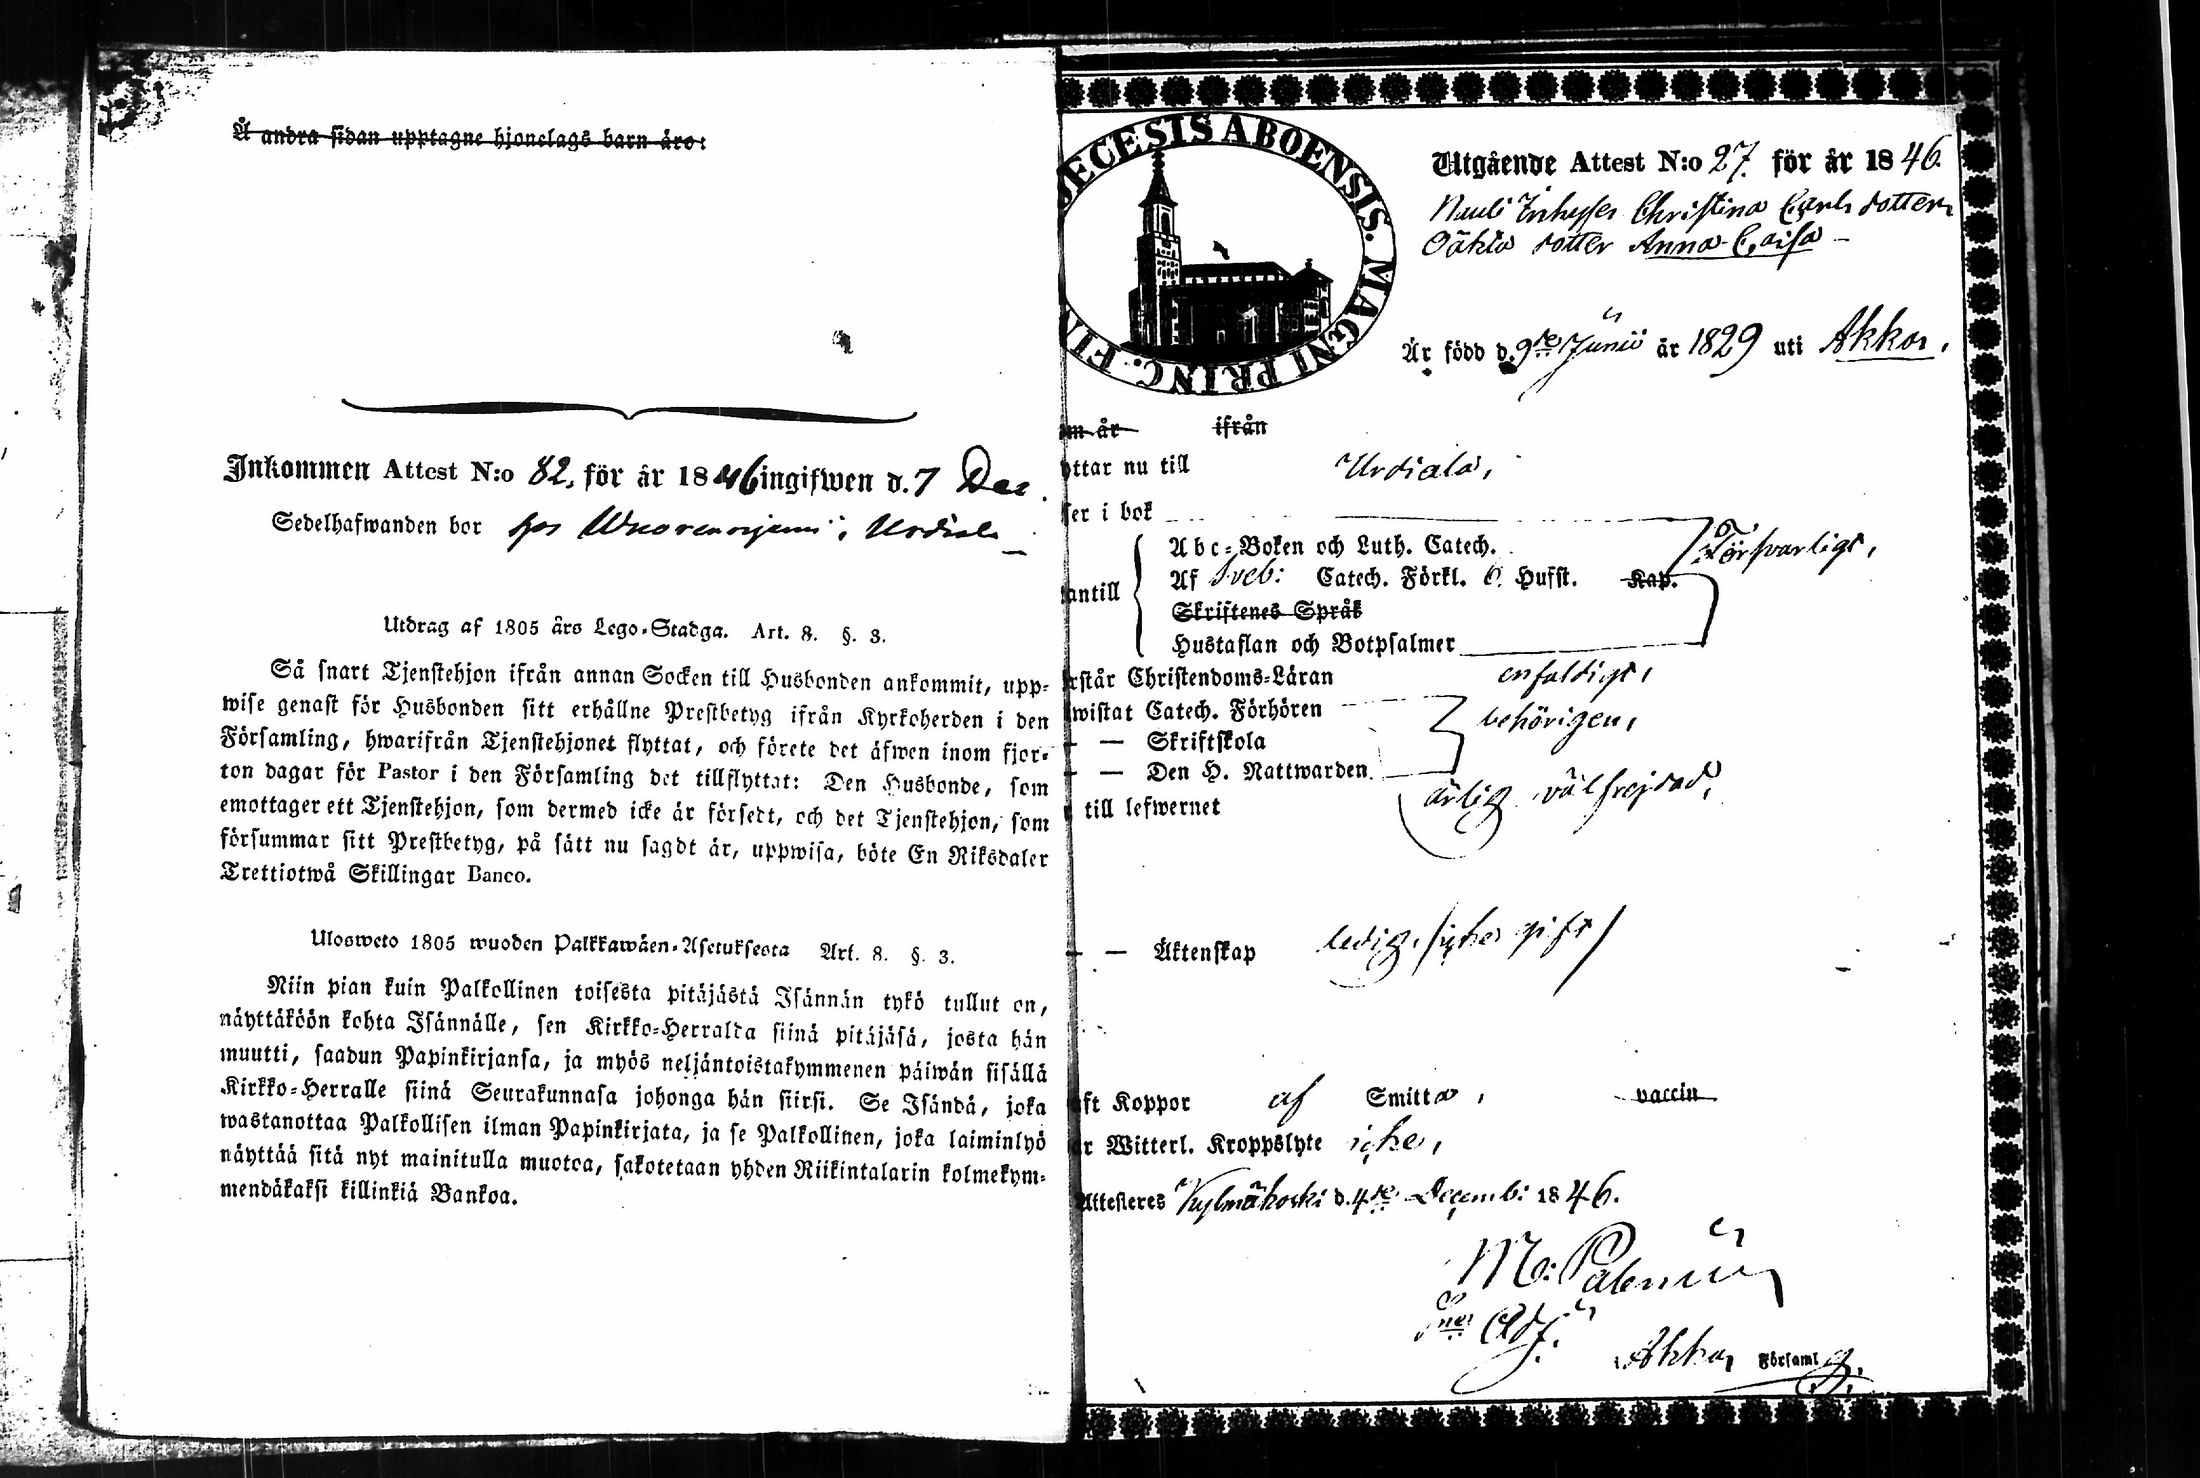 Å andra sidan upptagne hjonelags barn äro:
Inkommen Attest N:o 82. för år 1846 ingifwen d. 7 Dec
Sedelhafwanden bor hos i Urdiala
Utdrag af 1805 års Lego-Stadga. Art. 8. §. 3.
Så snart Tjenstehjon ifrån annan Socken till Husbonden ankommit, upp-
wise genast för Husbonden sitt erhållne Prestbetyg ifrån Kyrkoherden i den
Församling, hwarifrån Tjenstehjonet flyttat, och förete det äfwen inom fjor-
ton dagar för Pastor i den Församling det tillflyttat: Den Husbonde, som
emottager ett Tjenstehjon, som dermed icke är försedt, och det Tjenstehjon, som
försummar sitt Prestbetyg, på sätt nu sagdt är, uppwisa, böte En Riksdaler
Trettiotwå Skillingar Banco.
Ulosweto 1805 wuoden Palkkawäen-Asetuksesta Art. 8. §. 3.
Niin pian kuin Palkollinen toisesta pitäjästä Isännän tykö tullut on,
näyttäköön kohta Isännälle, sen Kirkko-Herralta siinä pitäjäsä, josta hän
muutti, saadun Papinkirjansa, ja myös neljäntoistakymmenen päiwän sisällä
Kirkko-Herralle siinä Seurakunnasa johonga hän siirsi. Se Isändä, joka
wastanottaa Palkollisen ilman Papinkirjata, ja se Palkollinen, joka laiminlyö
näyttää sitä nyt mainitulla muotoa, sakotetaan yhden Riikintalarin kolmekym-
mendäkaksi killinkiä Bankoa.
ECESIS ABOENSIS. MAGNI PRINC. FIN
Utgående Attest N:o 27. för år 1846.
Christina Carls dotters
Oäkta dotter Anna Caisa
Är född d. 9de Junii år 1829 uti Akkas,
om år ifrån
yttar nu till Urdiala,
ser i bok
Abc-Boken och Luth. Catech. Försvarligt,
Af Sveb: Catech. Förkl. Husst. Kap.
antill
Skriftenes Språk
Hustaflan och Botpsalmer
rstår Christendoms-Läran enfaldigt,
wistat Catech. Förhören behörigen,
— — Skriftskola
— — Den H. Nattwarden
till lefwernet ärlig välfrejdad,
— — Äktenskap ledig, /icke gift/
aft Koppor af Smitta, vaccin
ar Witterl. Kroppslyte icke,
Attesteres Kylmäkoski d. 4de Decemb: 1846.
Adj:
Akkas Församl g.